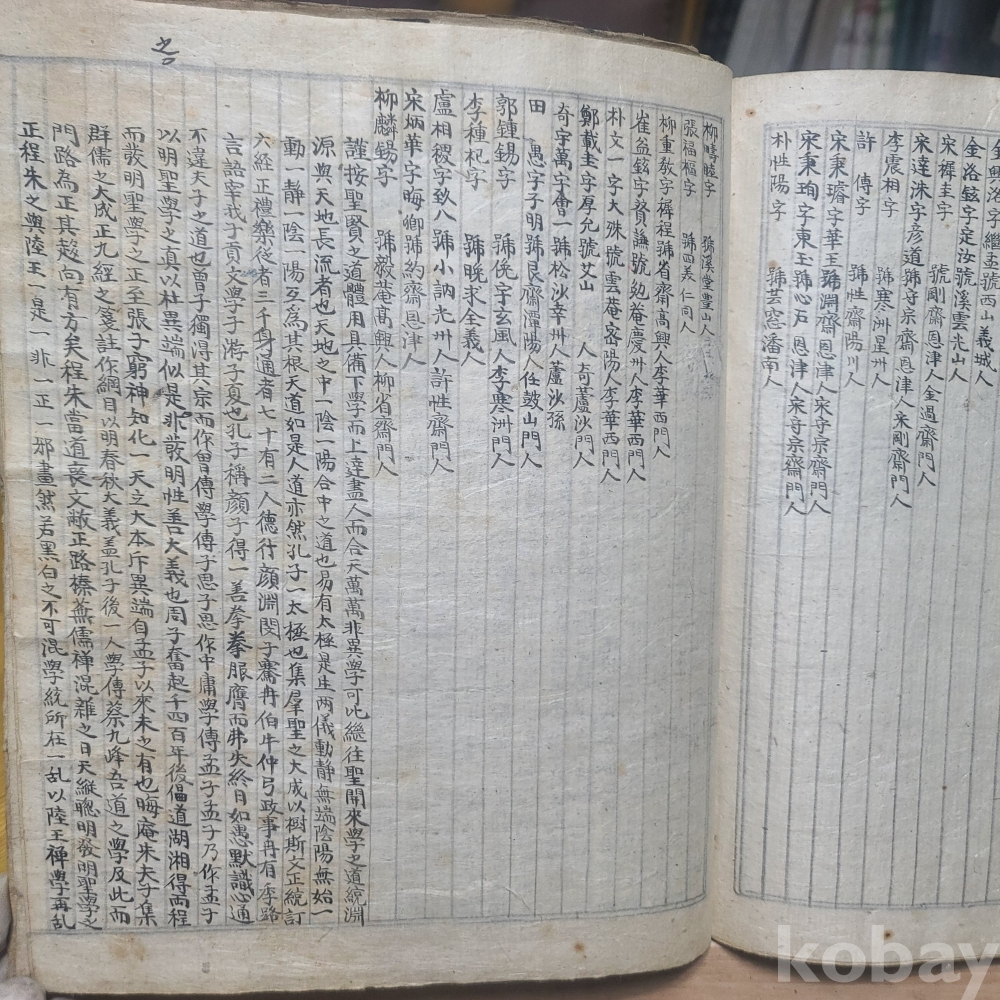 金洛鉉字定汝號溪雲光山人
宋穉圭字 號剛齋恩津人金過齋門人
宋達洙字彦道號守宗齋恩津人宋剛齋門人
李震相字 號寒洲星州人
許 傳字 號性齋陽川人
宋秉璿字華玉號淵齋恩津人宋守宗齋門人
宋秉珣字東玉號心石恩津人宋守宗齋門人
朴性陽字 號芸窓潘南人
柳疇睦字 號溪堂豊山人
張福樞字 號四美仁同人
柳重敎字穉程號省齋高興人李華西門人
崔益鉉字贊謙號勉菴慶州人李華西門人
朴文一字大殊號雲菴密陽人李華西門人
鄭載圭字厚允號艾山 人奇蘆沙門人
奇宇萬字會一號松沙幸州人蘆沙孫
田 愚字子明號艮齋潭陽人任鼓山門人
郭鍾錫字 號俛宇玄風人李寒洲門人
李種杞字 號晩求全義人
盧相稷字致八號小訥光州人許性齋門人
宋炳華字晦卿號約齋恩津人
柳麟錫字 號毅菴高興人柳省齋門人
謹按聖賢之道體用具備下學而上達盡人而合天萬萬非異學可比繼往聖開來學之道統淵
源與天地長流者也天地之中一陰一陽合中之道也易有太極是生兩儀動靜無端陰陽無始一
動一靜一陰一陽互爲其根天道如是人道亦然孔子一太極也集羣聖之大成以樹斯文正統訂
六經正禮樂從者三千身通者七十有二人德行顔淵閔子騫冉伯牛仲弓政事冉有季路
言語宰我子貢文學子游子夏也孔子稱顔子得一善拳拳服膺而弗失終日如愚默識心通
不違夫子之道也曾子獨得其宗而作曾傳學傳子思子思作中庸學傳孟子孟子乃作孟子
以明聖學之真以杜異端似是非發明性善大義也周子奮起千四百年後倡道湖湘得兩程
而發明聖學之正至張子窮神知化一天之大本斥異端自孟子以來未之有也晦庵朱夫子集
群儒之大成正九經之箋註作綱目以明春秋大義盖孔子後一人學傳蔡九峰吾道之學及此而
門路為正其趍向有方矣程朱當道喪文敝正路榛蕪儒禅混雜之日天縱聰明發明聖學之
正程朱之與陸王一是一非一正一邪畫然若黑白之不可混學統所在一乱以陸王禅學再乱